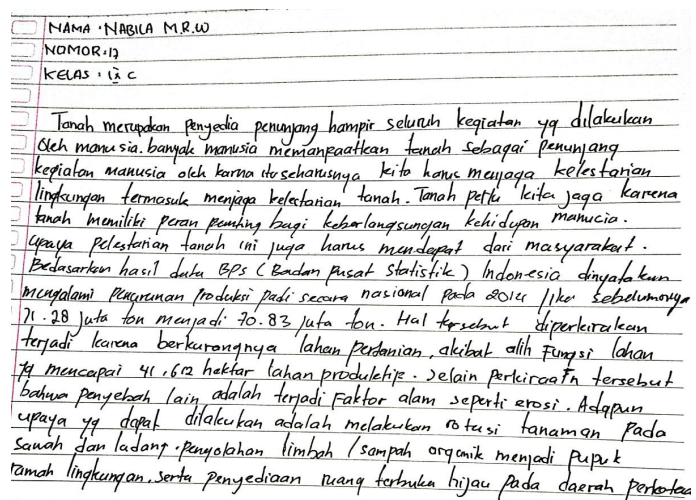 NAMA : NABILA M.R.W
NOMOR : 17
KELAS : IX C
Tanah merupakan penyedia penunjang hampir seluruh kegiatan yg dilakukan
oleh manusia. banyak manusia memanpaatkan tanah sebagai penunjang
kegiatan manusia oleh karma itu seharusnya kita harus menjaga kelestarian
lingkungan termasuk menjaga kelestarian tanah. Tanah perlu kita jaga karena
tanah memiliki peran penting bagi keberlangsungan kehidupan manucia.
upaya pelestarian tanah ini juga harus mendapat dari masyarakat.
Bedasarkan hasil data BPS (Badan pusat statistik) Indonesia dinyatakan
mengalami penurunan produksi padi secara nasional pada 2014 jika sebelumnya
71.28 juta ton menjadi 70.83 juta ton. Hal tersebut diperkirakan
terjadi karena berkurangnya lahan pertanian, akibat alih Fungsi lahan
yg mencapai 41,612 hektar lahan produktip. Selain perkiraan tersebut
bahwa penyebab lain adalah terjadi Faktor alam seperti erosi. Adapun
upaya yg dapat dilakukan adalah melakukan rotasi tanaman pada
sawah dan ladang. pengolahan limbah / sampah organik menjadi pupuk
ramah lingkungan, serta penyediaan ruang terbuka hijau pada daerah